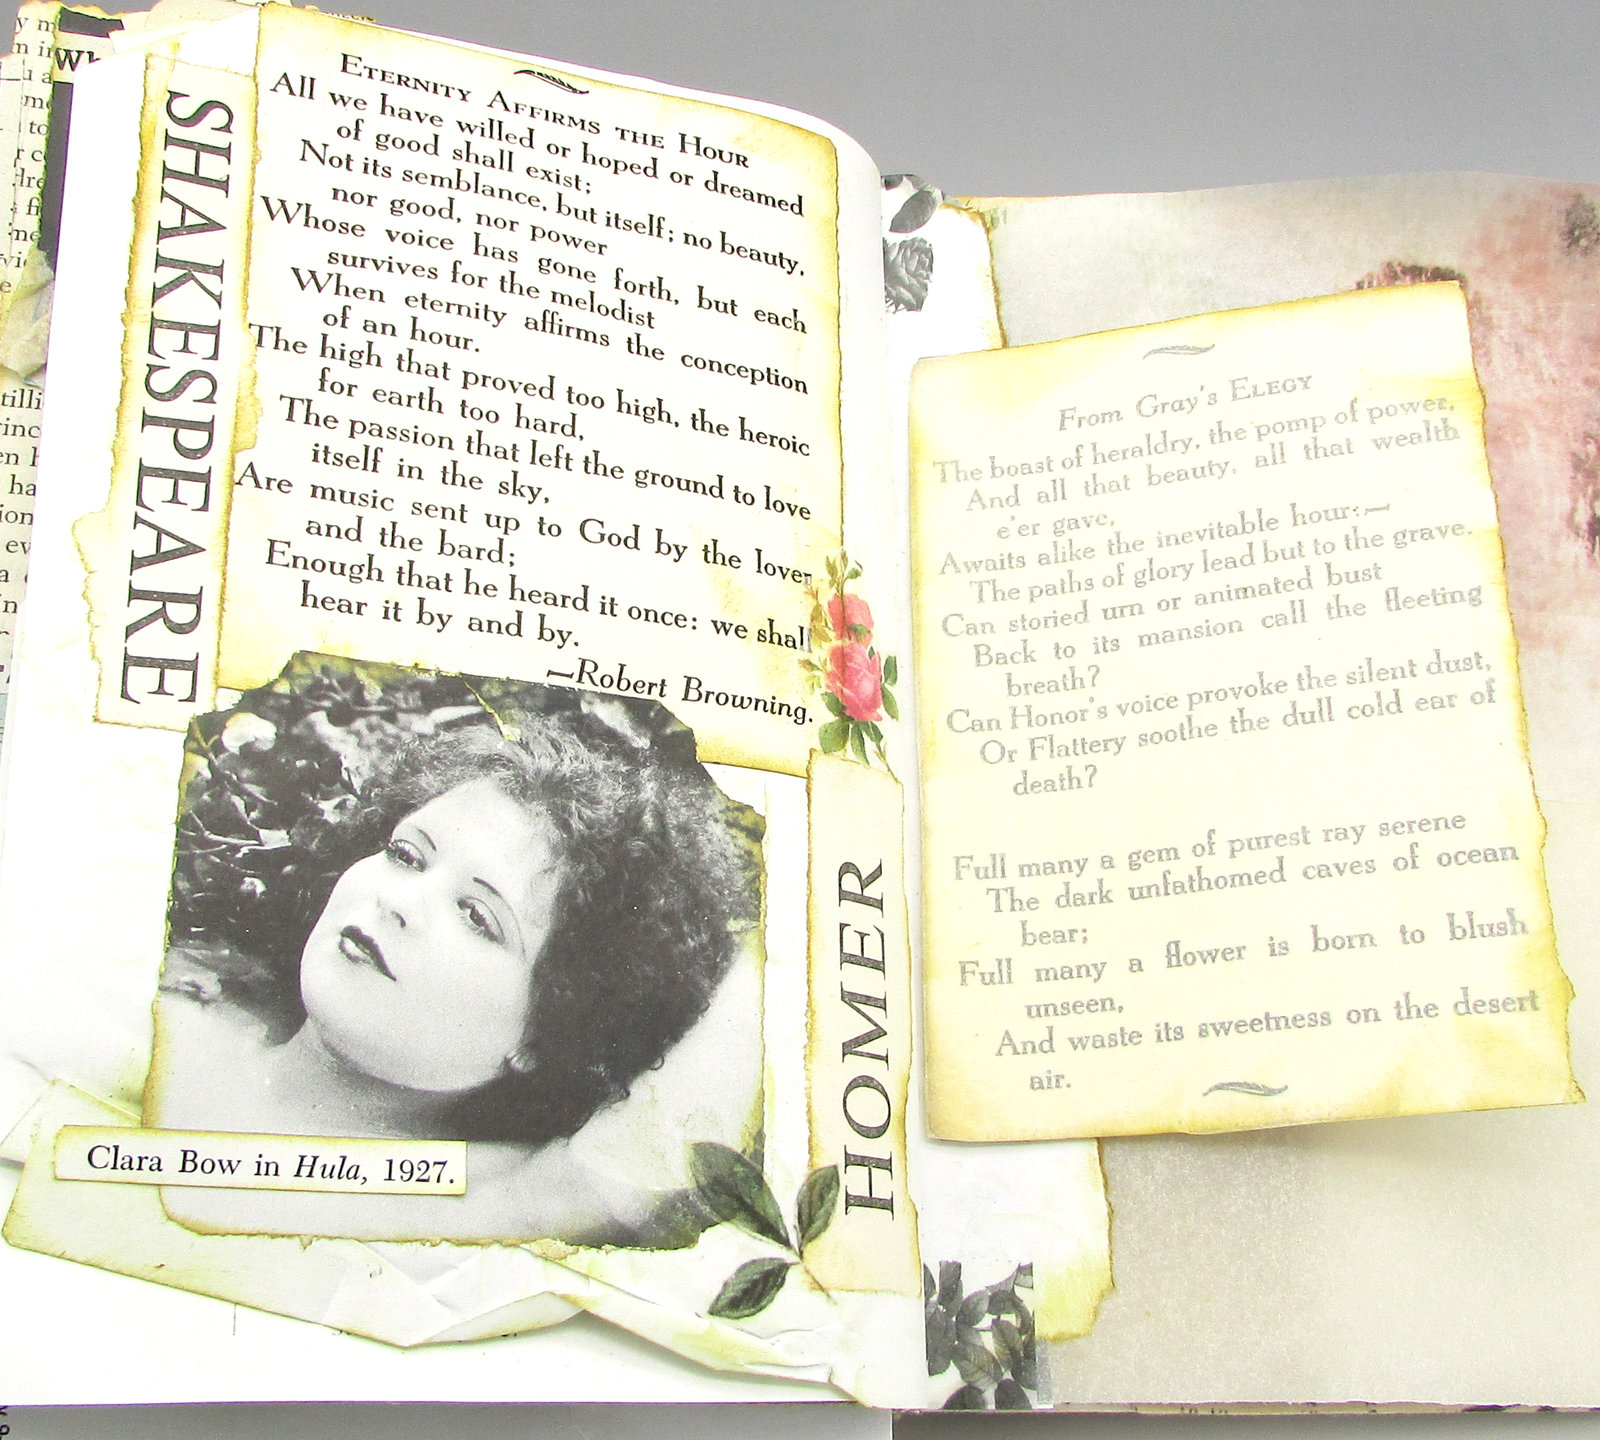 SHAKESPEARE
ETERNITY AFFIRMS THE HOUR
All we have willed or hoped or dreamed
of good shall exist;
Not its semblance, but itself; no beauty,
nor good, nor power
Whose voice has gone forth, but each
survives for the melodist
When eternity affirms the conception
of an hour.
The high that proved too high, the heroic
for earth too hard,
The passion that left the ground to love
itself in the sky,
Are music sent up to God by the lover
and the bard;
Enough that he heard it once: we shall
hear it by and by.
—Robert Browning.
Clara Bow in Hula, 1927.
HOMER
From Gray's ELEGY
The boast of heraldry, the pomp of power,
And all that beauty, all that wealth
e'er gave,
Awaits alike the inevitable hour:—
The paths of glory lead but to the grave.
Can storied urn or animated bust
Back to its mansion call the fleeting
breath?
Can Honor's voice provoke the silent dust,
Or Flattery soothe the dull cold ear of
death?
Full many a gem of purest ray serene
The dark unfathomed caves of ocean
bear;
Full many a flower is born to blush
unseen,
And waste its sweetness on the desert
air.